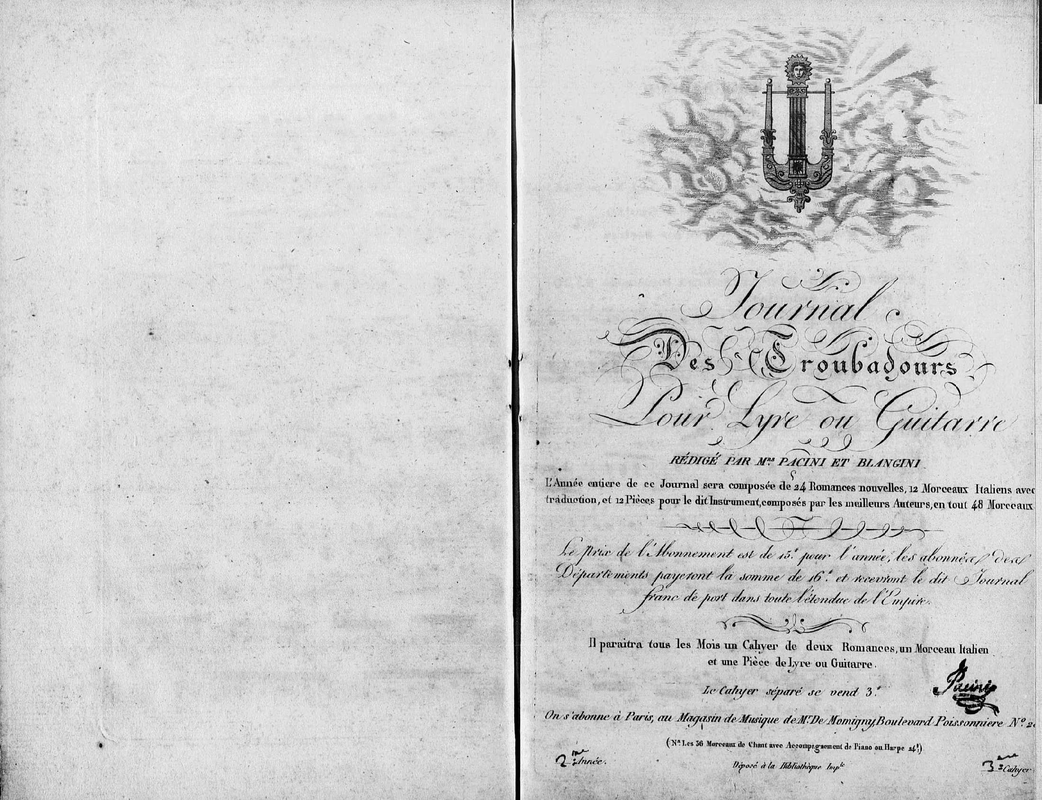 Journal
Des Troubadours
Pour Lyre ou Guitarre
RÉDIGÉ PAR M.rs PACINI ET BLANGINI
L'Année entiere de ce Journal sera composée de 24 Romances nouvelles, 12 Morceaux Italiens avec
traduction, et 12 Pièces pour le dit Instrument, composés par les meilleurs Auteurs, en tout 48 Morceaux
Le prix de l'Abonnement est de 15.f pour l'année, les abonnés des
Départements payeront la somme de 16.f et recevront le dit Journal
franc de port dans toute l'étendue de l'Empire.
Il paraitra tous les Mois un Cahyer de deux Romances, un Morceau Italien
et une Pièce de Lyre ou Guitarre.
Le Cahyer séparé se vend 3.f
Pacini
On s'abonne à Paris, au Magasin de Musique de M.r De Momigny, Boulevard Poissonniere N.o
(N.a Les 36 Morceaux de Chant avec Accompagnement de Piano ou Harpe 24.f)
2.me Année.
Déposé à la Bibliothèque Imp.le
3.me Cahyer